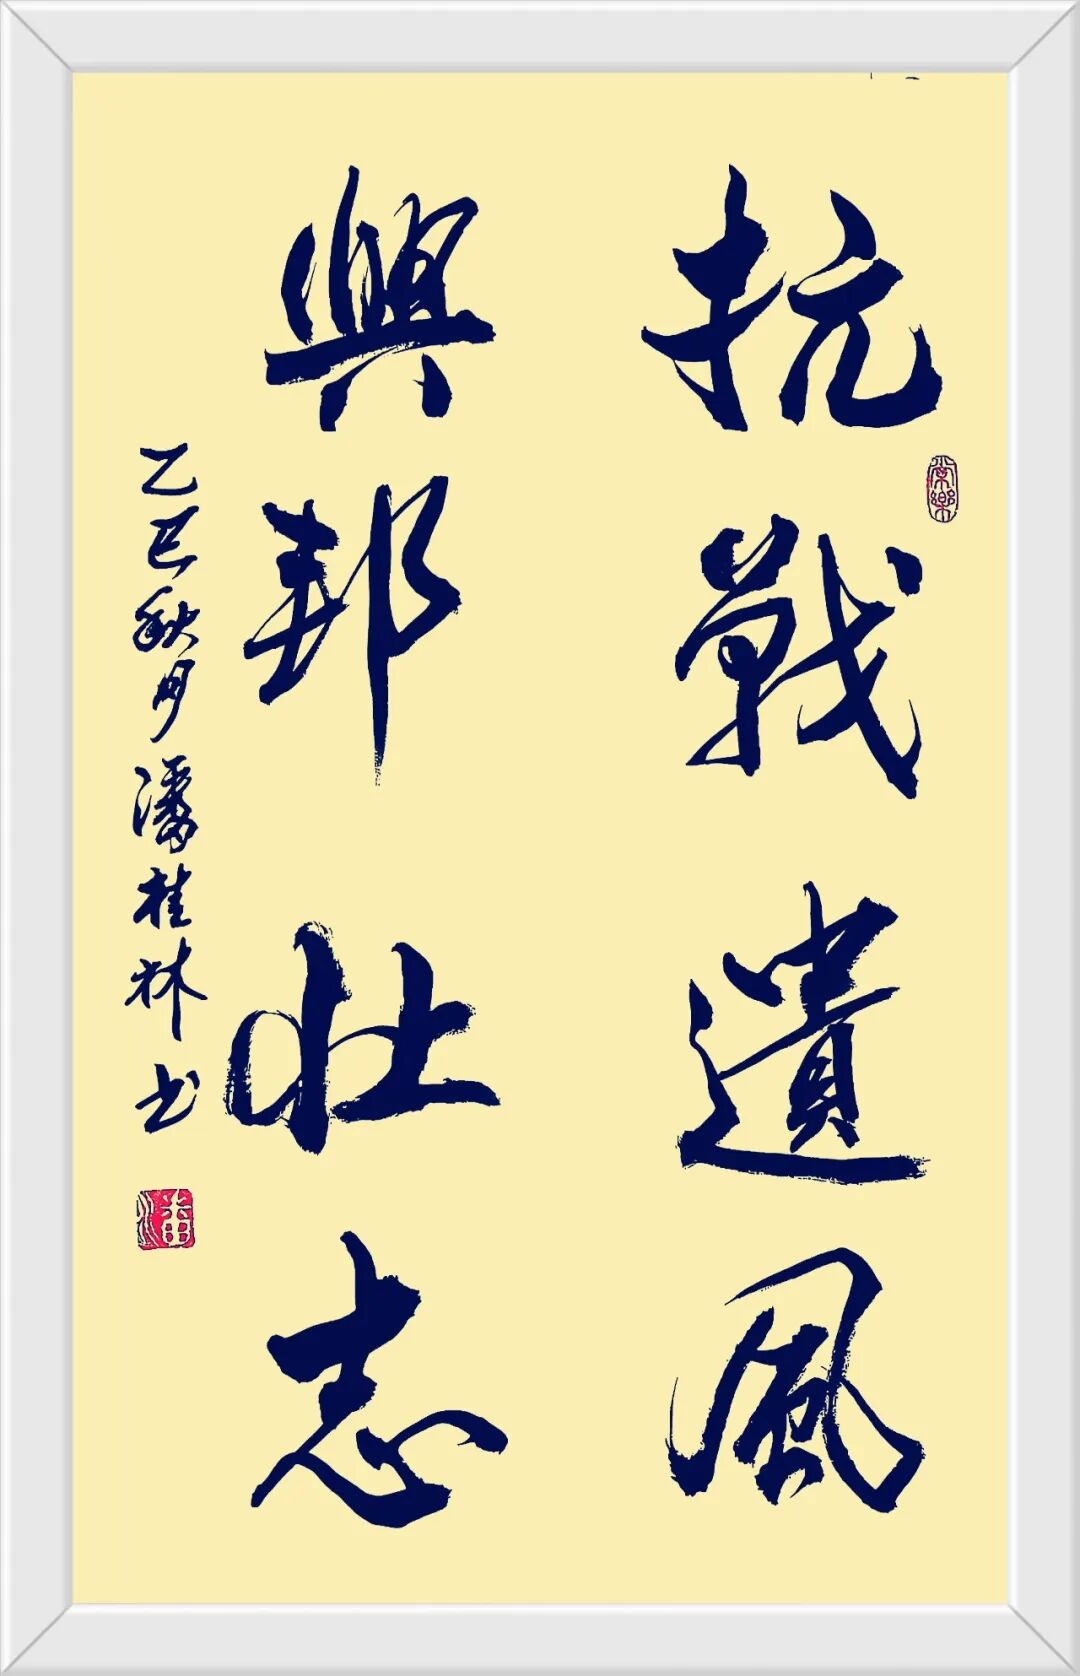 抗戰遺風
興邦壯志
乙巳秋月潘桂林书
常樂
潘